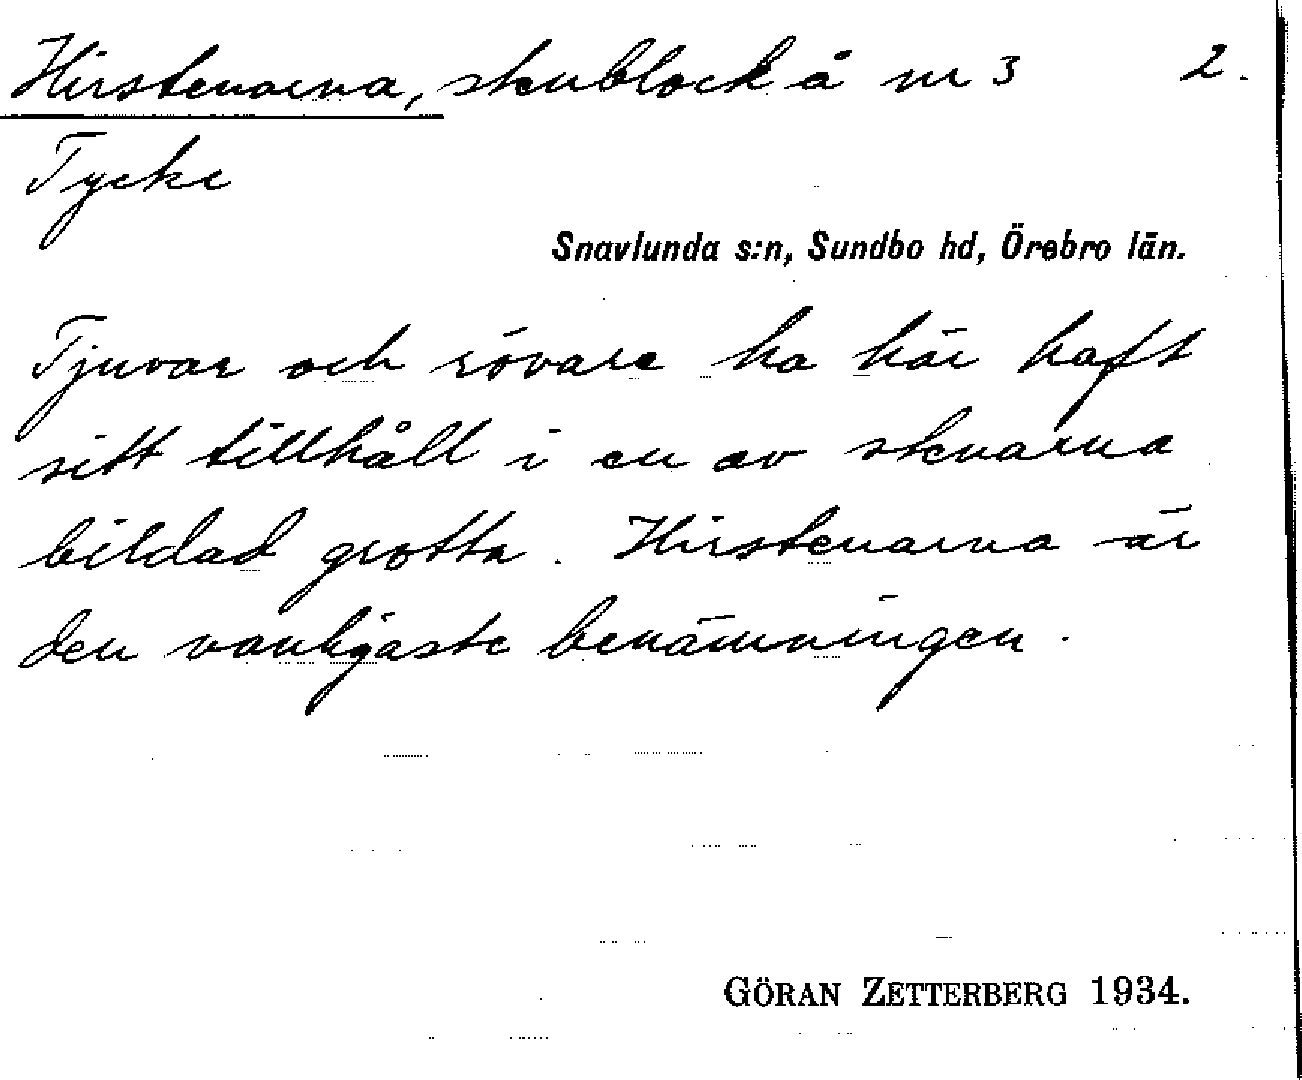 Hirstenarna, stenblock å nr 3 2.
Tycke
Snavlunda s:n, Sundbo hd, Örebro län.
Tjuvar och rövare ha här haft
sitt tillhåll i en av stenarna
bildad grotta. Hirstenarna är
den vanligaste benämningen.
GÖRAN ZETTERBERG 1934.